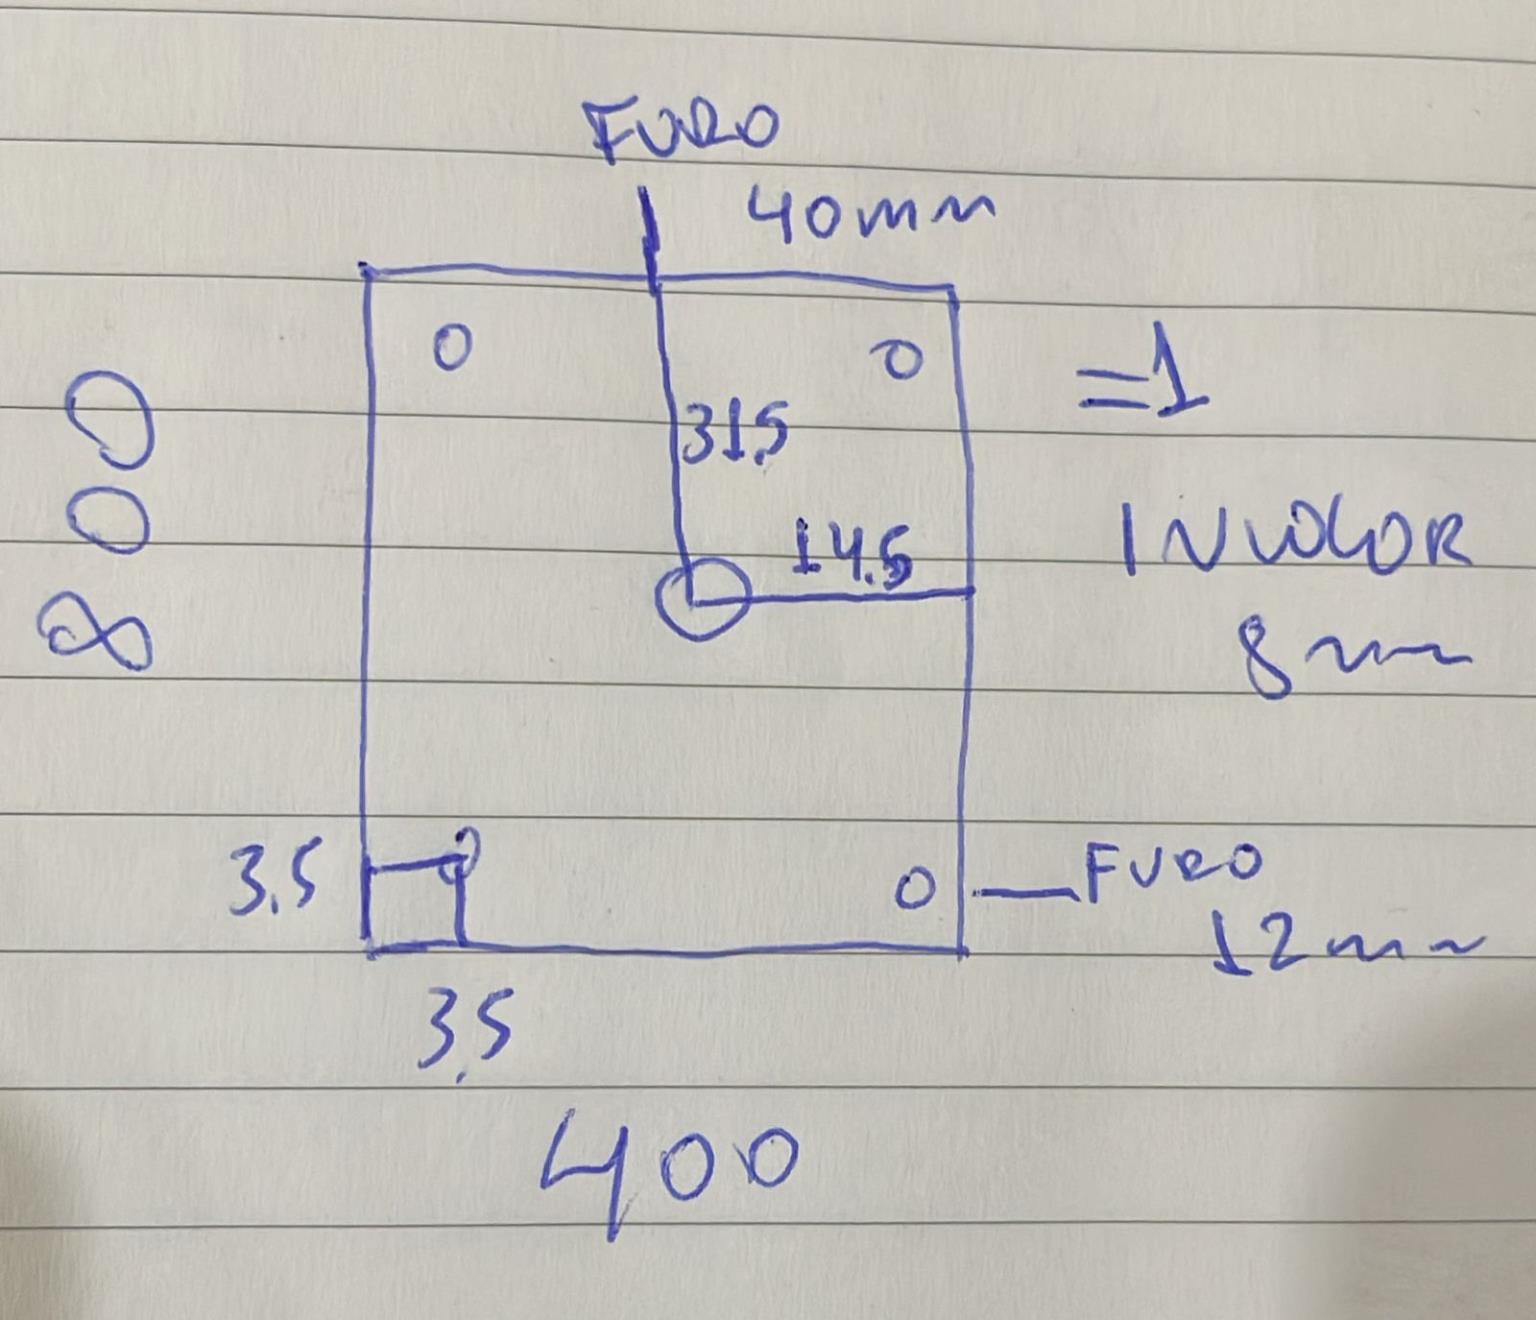 FURO
40mm
=1
31,5
INCOLOR
14.5
8mm
800
3.5
FURO
12mm
3,5
400